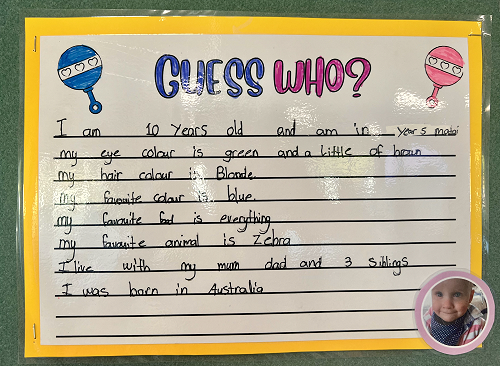 GUESS WHO?
I am 10 years old and am in year 5 matai
my eye colour is green and a little of brown
my hair colour is Blonde.
my favourite colour is blue.
my favourite food is everything
my favourite animal is Zebra
I live with my mum dad and 3 siblings
I was born in Australia